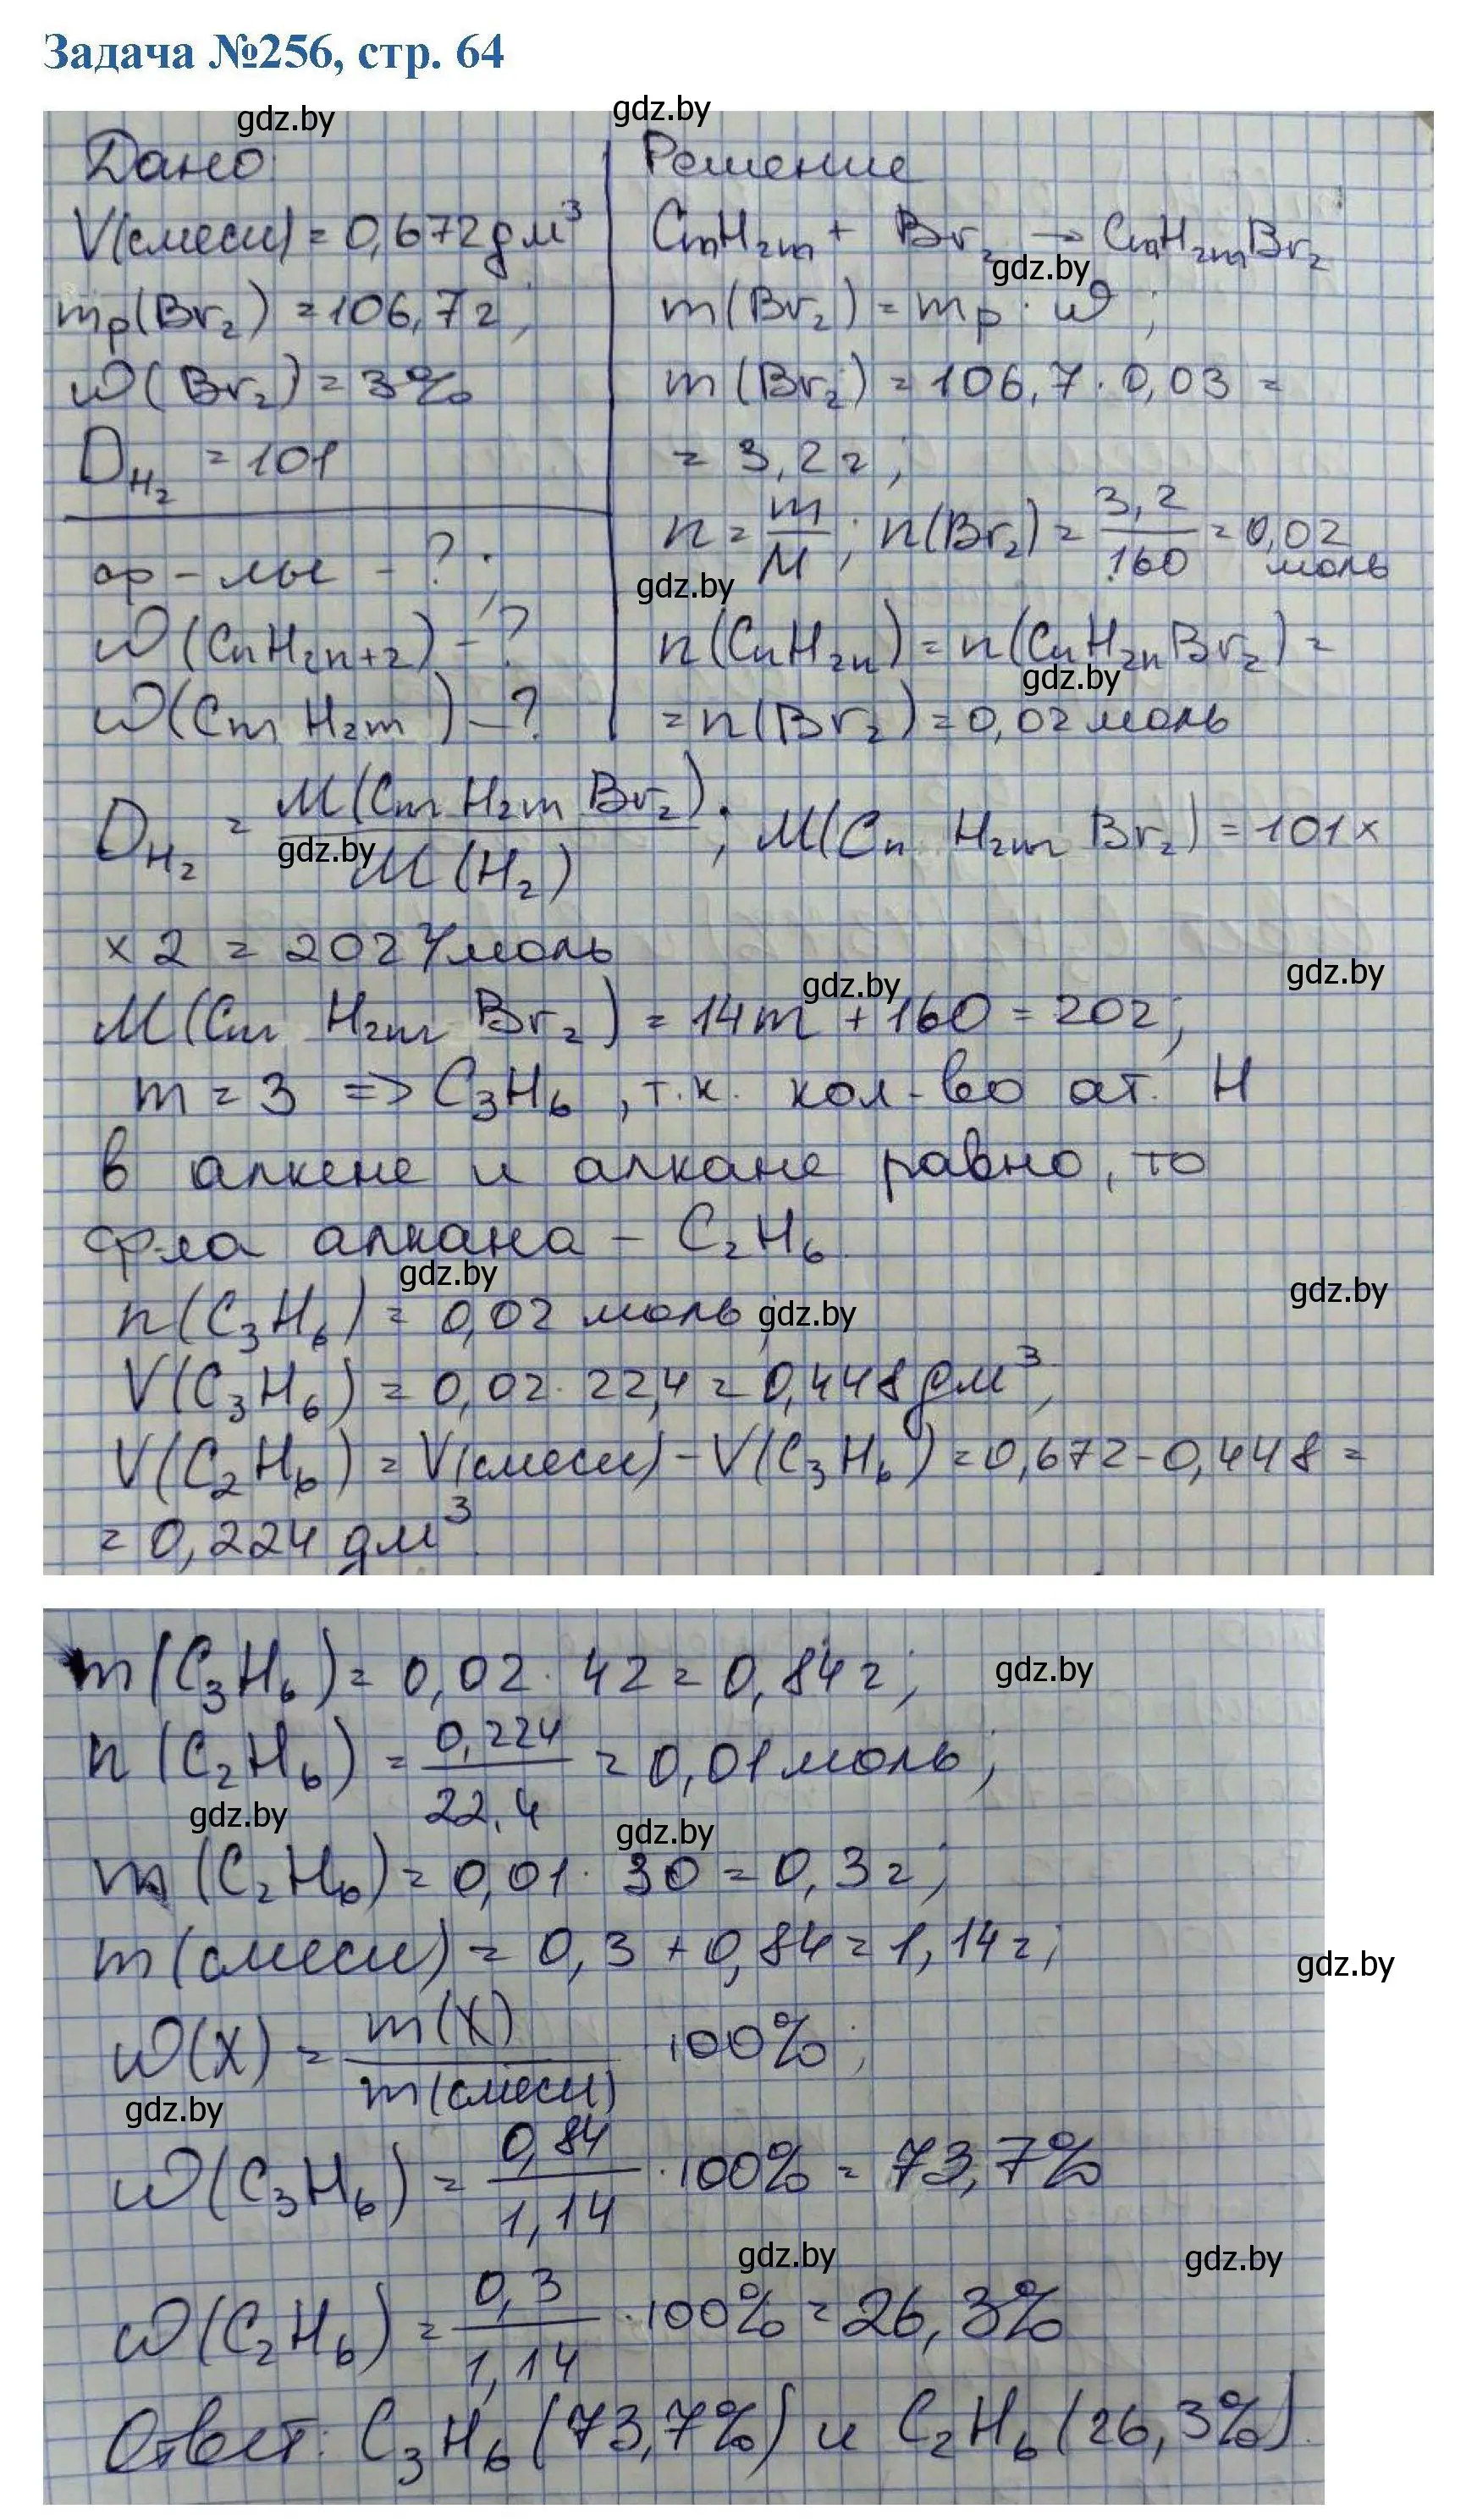 Задача №256, стр. 64
gdz.by gdz.by
Дано:
V(смеси) = 0,672 дм³
mр(Br₂) = 106,7 г;
ω(Br₂) = 3%
D_H₂ = 101
ф-лы - ?;
ω(CnH2n+2) - ?
ω(CmH2m) - ?
Решение
CmH2m + Br₂ → CmH2mBr₂
gdz.by
m(Br₂) = mр · ω;
m(Br₂) = 106,7 · 0,03 =
= 3,2 г;
n = m/M; n(Br₂) = 3,2/160 = 0,02 моль
gdz.by
n(CnH2n) = n(CnH2nBr₂) =
gdz.by
= n(Br₂) = 0,02 моль
D_H₂ = M(CmH2mBr₂)/M(H₂); M(CnH2mBr₂) = 101 ×
gdz.by
× 2 = 202 г/моль
gdz.by gdz.by
M(CmH2mBr₂) = 14m + 160 = 202;
m = 3 => C₃H₆, т.к. кол-во ат. H
в алкене и алкане равно, то
ф-ла алкана - C₂H₆.
gdz.by gdz.by
n(C₃H₆) = 0,02 моль
gdz.by
V(C₃H₆) = 0,02 · 22,4 = 0,448 дм³;
V(C₂H₆) = V(смеси) - V(C₃H₆) = 0,672 - 0,448 =
= 0,224 дм³.
m(C₃H₆) = 0,02 · 42 = 0,84 г;
gdz.by
n(C₂H₆) = 0,224/22,4 = 0,01 моль;
gdz.by gdz.by
m(C₂H₆) = 0,01 · 30 = 0,3 г;
m(смеси) = 0,3 + 0,84 = 1,14 г;
gdz.by
ω(X) = m(X)/m(смеси) · 100%;
gdz.by
ω(C₃H₆) = 0,84/1,14 · 100% = 73,7%
gdz.by gdz.by
ω(C₂H₆) = 0,3/1,14 · 100% = 26,3%
Ответ: C₃H₆ (73,7%) и C₂H₆ (26,3%).